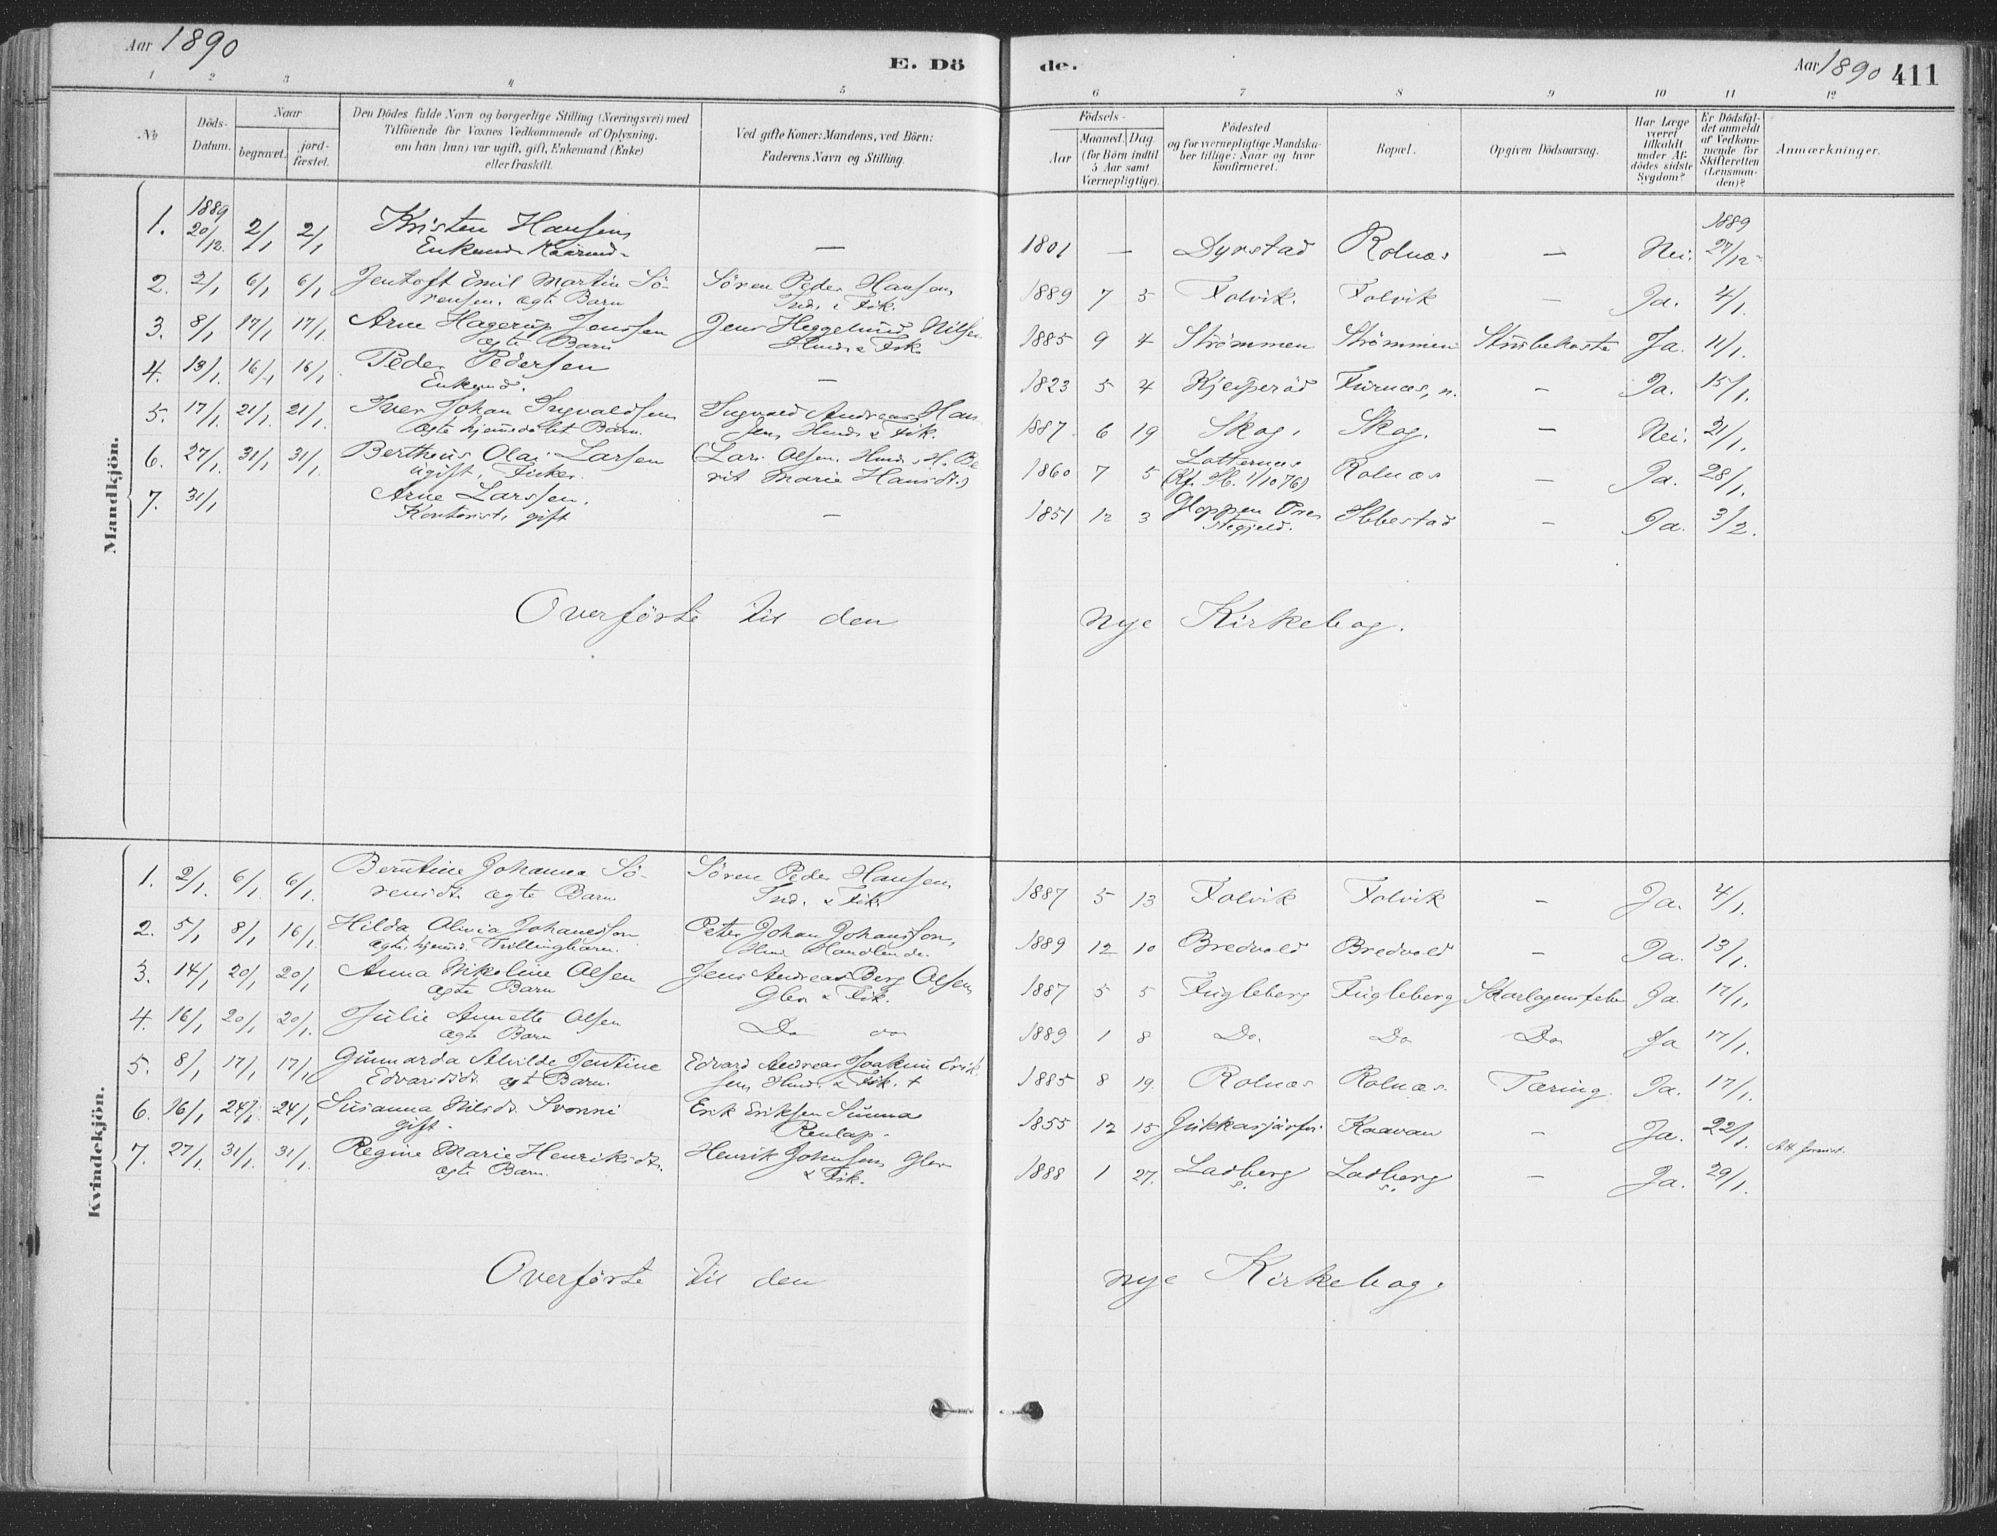 Aar 1890
E. Dö
de.
Aar 1890
411
1 2 3 4 5 6 7 8 9 10 11 12
No
Döds-Datum.
Naar
begravet.
jord-fæstet.
Den Dödes fulde Navn og borgerlige Stilling (Næringsvei) med
Tilföiende for Voxnes Vedkommende af Oplysning,
om han (hun) var ugift, gift, Enkemand (Enke)
eller fraskilt.
Ved gifte Koner: Mandens, ved Börn:
Faderens Navn og Stilling.
Födsels-
Aar
Maaned. Dag.
(for Börn indtil
5 Aar samt
Værnepligtige).
Födested
og for værnepligtige Mandska-
ber tillige: Naar og hvor
konfirmeret.
Bopæl.
Opgiven Dödsaarsag.
Har Læge
været
tilkaldt
under Af-
dödes sidste
Sygdom?
Er Dödsfal-
det anmeldt
af Vedkom-
mende for
Skifteretten
(Lensman-
den)?
Anmærkninger.
Mandkjön.
1889 1889
1. 20/12. 2/1 2/1 Kristen Hansen — 1801 — Dyrstad Rolnæs — Nei. 27/12
Enkemd.
2. 2/1 6/1 6/1 Jentoft Emil Martin Sö- Sören Peder Hansen, 1889 7 5 Folvik. Folvik — Ja. 4/1.
rensen. ægte Barn Ind. & Fisk.
3. 8/1 17/1 17/1 Arne Hagerup Jenssen Jens Heggelund Nilsen 1885 9 4 Strömmen Strömmen Ja. 11/1.
ægte Barn Husmd & Fisk.
4. 13/1 16/1 16/1 Peder Pedersen — 1823 5 4 — Ja. 15/1.
Enkemd.
5. 17/1 21/1 21/1 Iver Johan Ingvaldsen Ingvald Andreas Han- 1887 6 19 Skog. Skog. — Nei. 21/1.
ægte hjemmedöbt Barn. sen, Husmd & Fisk.
6. 27/1. 31/1 31/1 Bertheus Olai Larsen (Lars Olsen, Husmd H. Be- 1860 7 5 Rolnæs — Ja. 28/1.
ugift, Fisker. rit Marie Hansdtr) (Kf. H. 1/10 76)
7. 31/1 Arne Larssen. — 1851 12 3 Gloppen Præ- Ibbestad — Ja. 3/2.
Kontorist, gift stegjeld.
Overförte til den nye Kirkebog.
Kvindekjön.
1. 2/1. 6/1. 6/1. Berntine Johanna Sö- Sören Peder Hansen, 1887 5 13 Folvik Folvik — Ja. 4/1.
rensdt. ægte Barn Ind. & Fisk.
2. 5/1 8/1 16/1. Hilda Olivia Johansson Peter Johan Johansson, 1889 12 10 Bredvold Bredvold — Ja. 13/1.
ægte hjemmd. Tvillingbarn. Husmd Handlende.
3. 14/1 20/1 20/1 Anna Nikoline Olsen Jens Andreas Berg Olsen, 1887 5 5 Fugleberg Fugleberg Skarlagensfeber Ja 17/1.
ægte Barn & Fisk.
4. 16/1 20/1 20/1. Julie Annette Olsen Do 1889 1 8 Do. Do Do Ja 17/1.
ægte Barn
5. 8/1 17/1 17/1 Gunnarda Alvilde Jentine Edvard Andreas Joakim Erik- 1885 8 19. Rolnæs Rolnæs. Tæring. Ja. 17/1.
Edvardsdt. ægt Barn. sen, Husmd. & Fisk. †
6. 16/1 24/1 24/1 Susanna Nilsdt. Svonni Erik Eriksen Sunna 1855 12 15 Kaavan — Ja. 22/1.
gift. Renlap.
7. 27/1. 31/1. 31/1. Regine Marie Henriksdt. Henrik Johnsen, 1888 1 27. Ladberg Ladberg — Ja. 29/1.
ægte Barn. & Fisk. s. s.
Overförte til den nye Kirkebog.